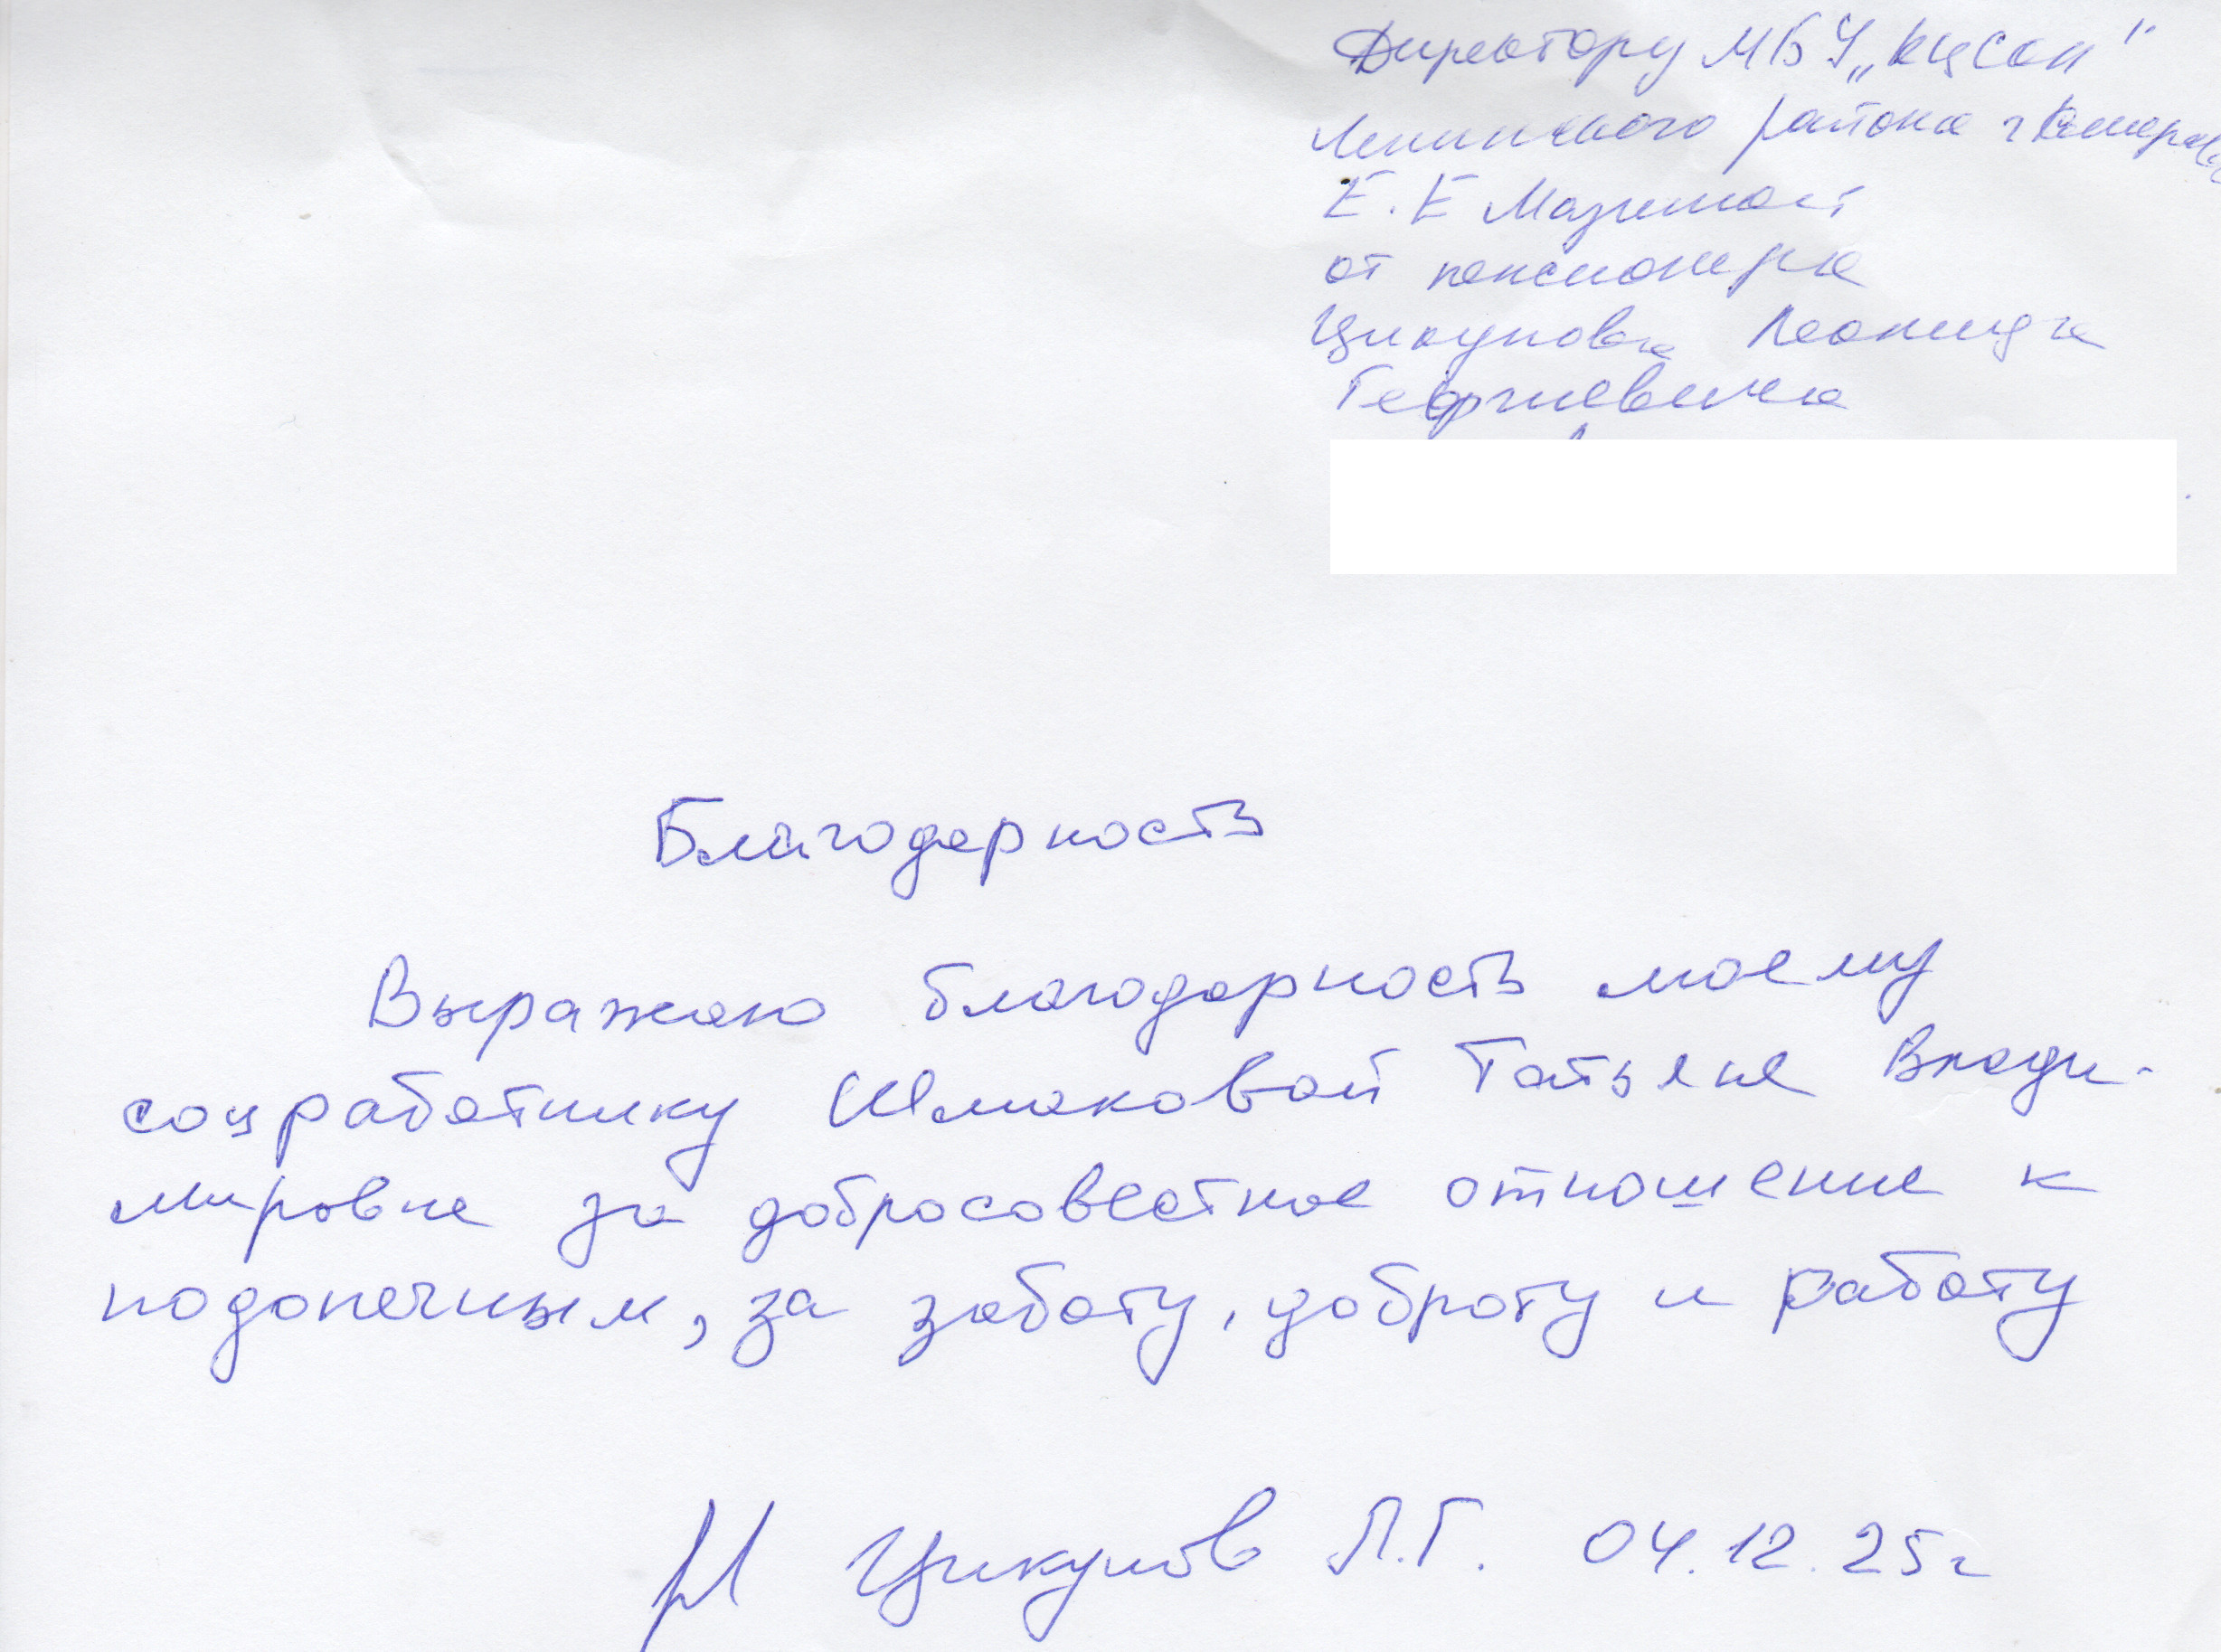 Директору МБУ „КЦСОН"
Ленинского района г Кемерово
Е.Е
от пенсионера
Цикунова Леонида
Георгиевича
Благодарность
Выражаю благодарность моему
соцработнику Шмаковой Татьяне Влади-
мировне за добросовестное отношение к
подопечным, за заботу, доброту и работу
Цикунов Л.Г. 04.12.25г